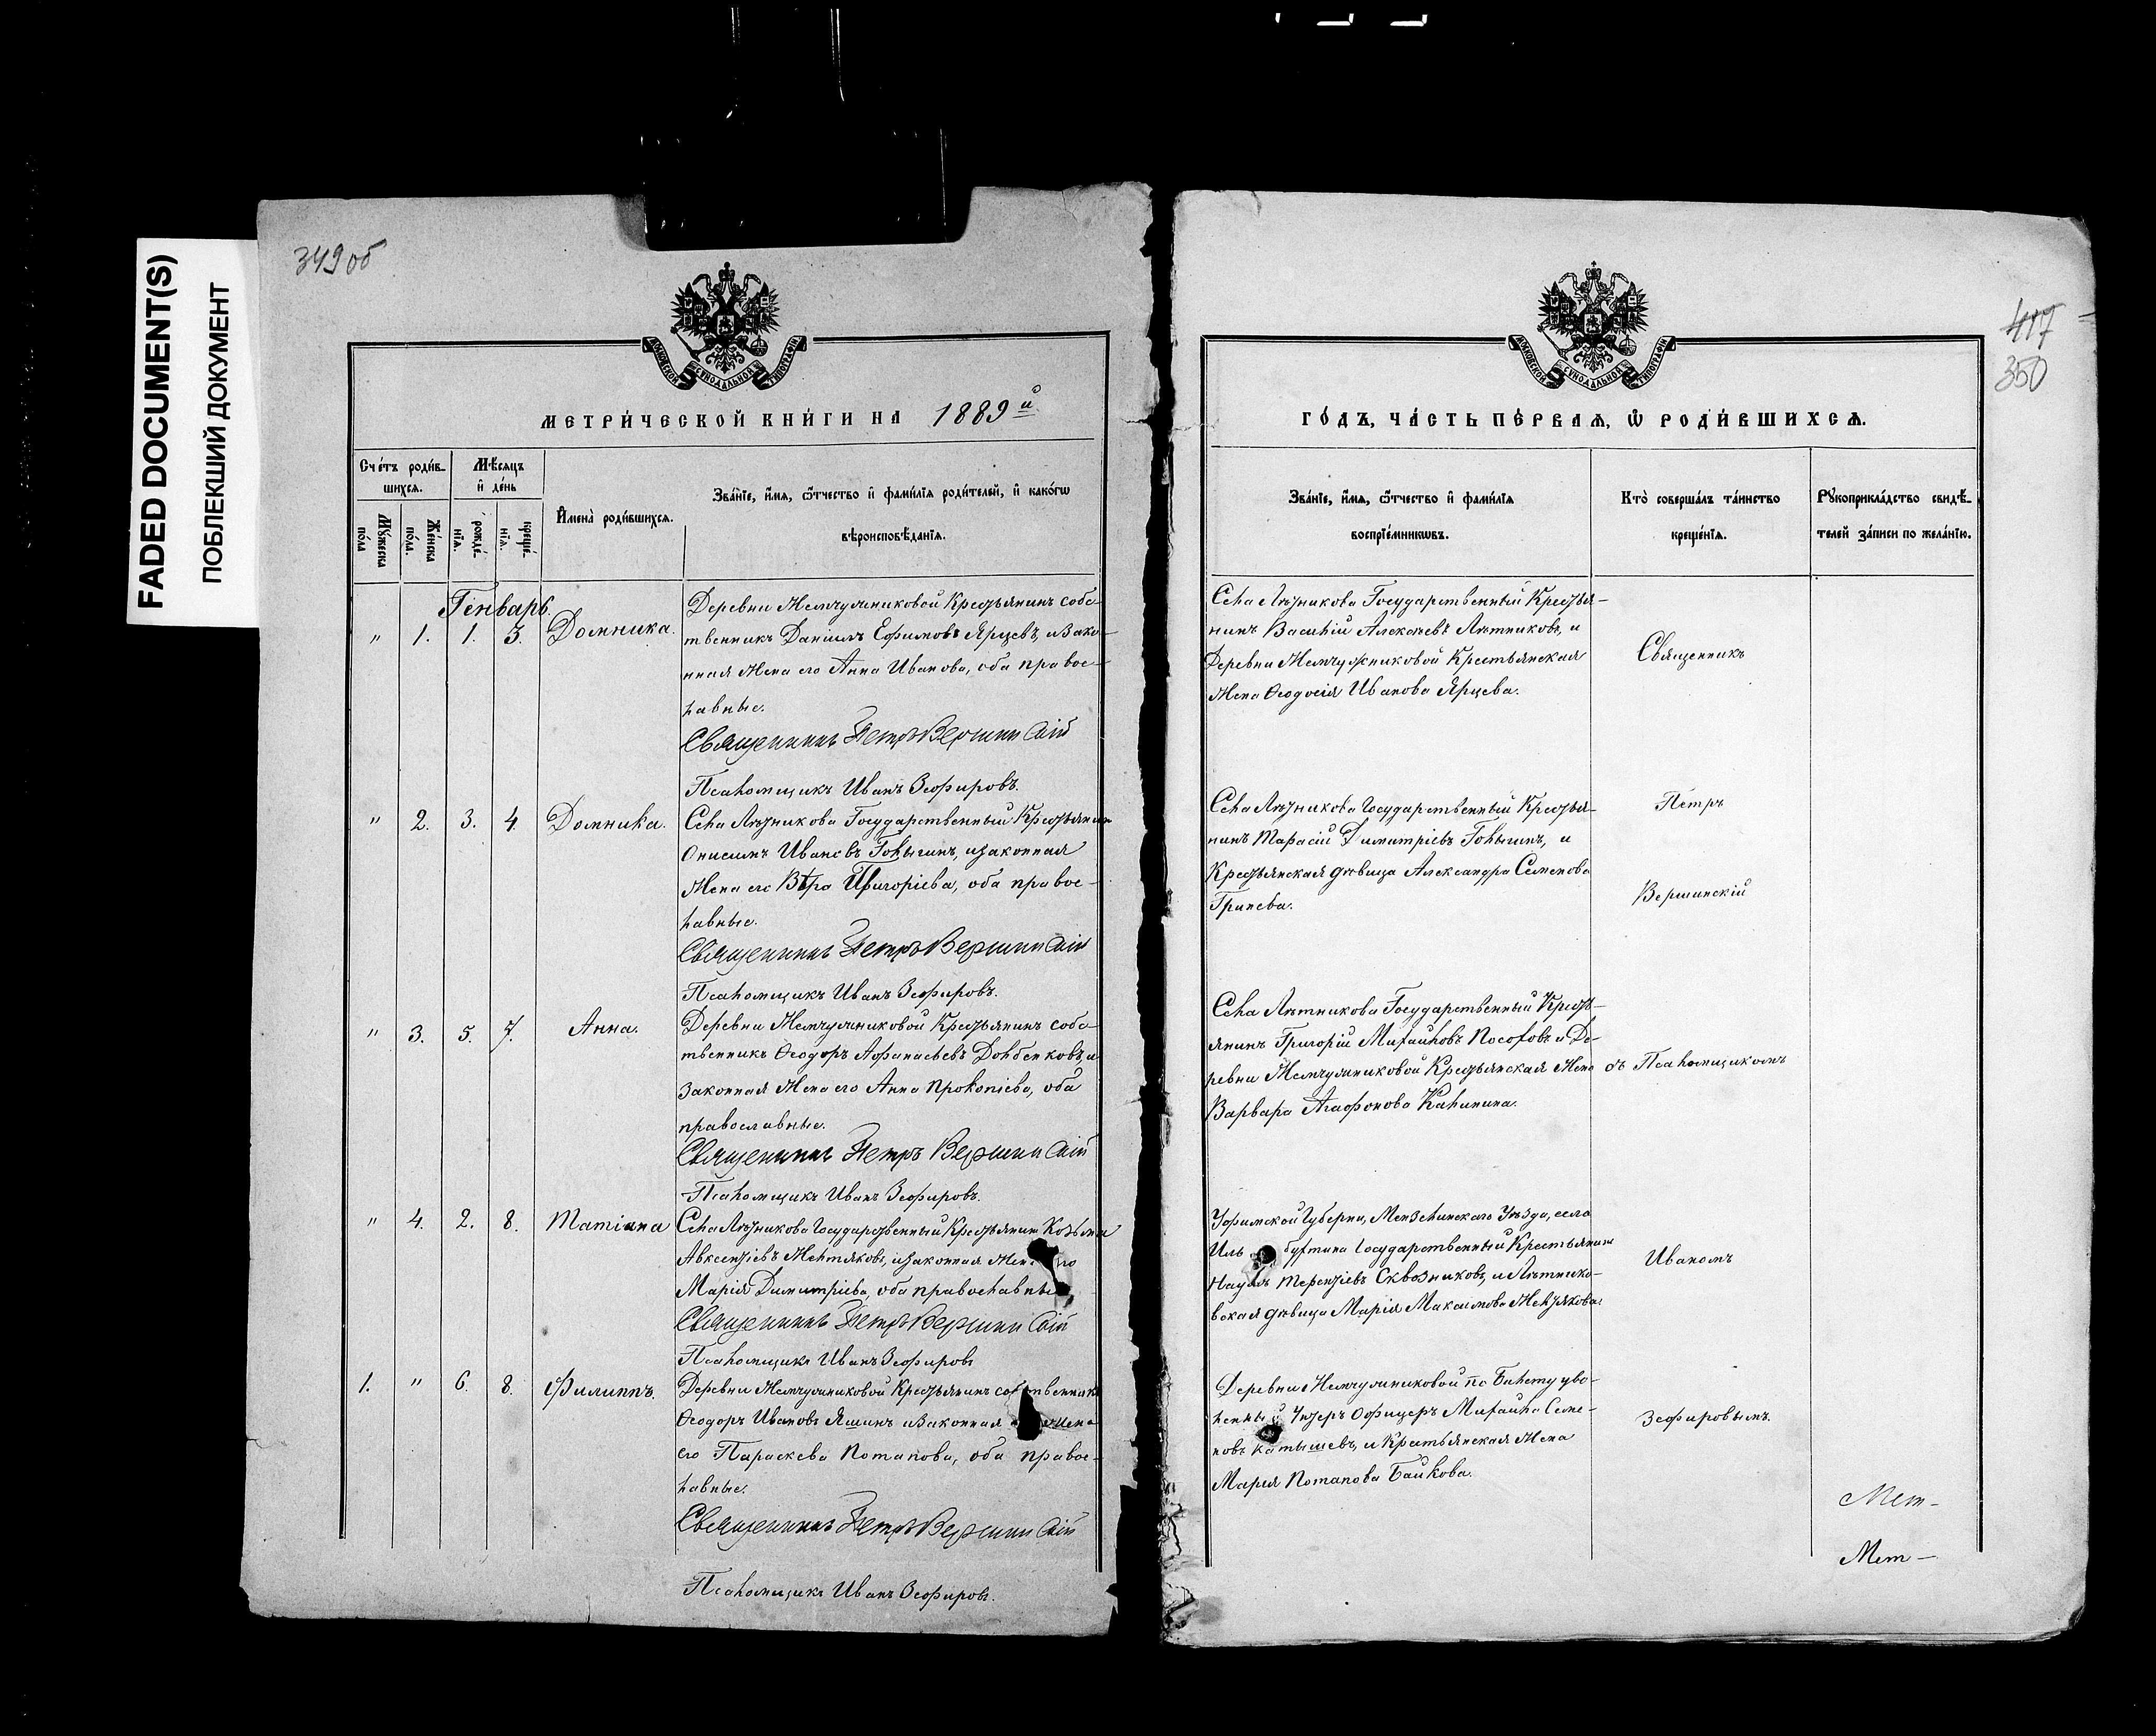 FADED DOCUMENT(S)
ПОБЛЕКШИЙ ДОКУМЕНТ
349 об
МОСКОВСКОЙ СѴНОДАЛЬНОЙ ТИПОГРАФІИ
МЕТРИ́ЧЕСКОЙ КНИ́ГИ НА 1889й
Сче́тъ роди́в-
шихсѧ.
Мѣ́сѧцъ
и҆ де́нь
Мꙋ́жеска
по́ла
Же́нска
по́ла.
рожде́-
нїѧ.
креще́-
нїѧ.
И҆мена̀ роди́вшихсѧ.
Зва́нїе, и҆́мѧ, ѻ҆́тчество и҆ фами́лїѧ роди́телей, и҆ како́гѡ
вѣроисповѣ́данїѧ.
Генварь.
" 1. 1. 3. Домника.
Деревни Жемчужниковой Крестьянинъ собс-
твенникъ Даніилъ Ефимовъ Ярцевъ, и зако-
нная жена его Анна Иванова, оба правос-
лавные.
Священникъ Петръ Вершинскій
Псаломщикъ Иванъ Зефировъ.
" 2. 3. 4. Домника.
Села Лѣтникова Государственный Крестьянинъ
Онисимъ Ивановъ Голыгинъ, и законная
жена его Вѣра Григоріева, оба правос-
лавные.
Священникъ Петръ Вершинскій
Псаломщикъ Иванъ Зефировъ.
" 3. 5. 7. Анна.
Деревни Жемчужниковой Крестьянинъ собс-
твенникъ Ѳеодоръ Афанасьевъ Долбенковъ, и
законная жена его Анна Прокопіева, оба
православные.
Священникъ Петръ Вершинскій
Псаломщикъ Иванъ Зефировъ.
" 4. 2. 8. Татіана
Села Лѣтникова Государственный Крестьянинъ Козьма
Авксентіевъ Желтяковъ, и законная жена его
Марія Димитріева, оба православные,
Священникъ Петръ Вершинскій
Псаломщикъ Иванъ Зефировъ
1. " 6. 8. Филиппъ.
Деревни Жемчужниковой Крестьянинъ собственникъ
Ѳеодоръ Ивановъ Яшинъ и законная жена
его Параскева Потапова, оба правос-
лавные.
Священникъ Петръ Вершинскій
Псаломщикъ Иванъ Зефировъ.
417
350
МОСКОВСКОЙ СѴНОДАЛЬНОЙ ТИПОГРАФІИ
ГО́ДЪ, ЧА́СТЬ ПЕ́РВАѦ, Ѡ҆ РОДИ́ВШИХСѦ.
Зва́нїе, и҆́мѧ, ѻ҆́тчество и҆ фами́лїѧ
воспрїе́мникѡвъ.
Кто̀ соверша́лъ та́инство
креще́нїѧ.
Рꙋкоприкла́дство свидѣ́-
телей за́писи по жела́нїю.
Села Лѣтникова Государственный Крестья-
нинъ Василій Алексѣевъ Лѣтниковъ, и
Деревни Жемчужниковой Крестьянская
жена Ѳеодосія Иванова Ярцева.
Священникъ
Села Лѣтникова Государственный Крестья-
нинъ Тарасій Димитріевъ Голыгинъ, и
Крестьянская дѣвица Александра Семенова
Гринева.
Петръ
Вершинскій
Села Лѣтникова Государственный Кресть-
янинъ Григорій Михайловъ Посоховъ и Де-
ревни Жемчужниковой Крестьянская жена
Варвара Агафонова Калинина.
съ Псаломщикомъ
Уфимской Губерни, Мензелинскаго Уѣзда, села
Иль бухтина Государственный Крестьянинъ
Наумъ Терентіевъ Сквозниковъ, и Лѣтнико-
вская дѣвица Марія Максимова Желтякова.
Иваномъ
Деревни Жемчужниковой по билету уво-
ленный Унтеръ Офицеръ Михаилъ Семе-
новъ Катышевъ, и Крестьянская жена
Марія Потапова Байкова.
Зефировымъ.
Мет-
Мет-